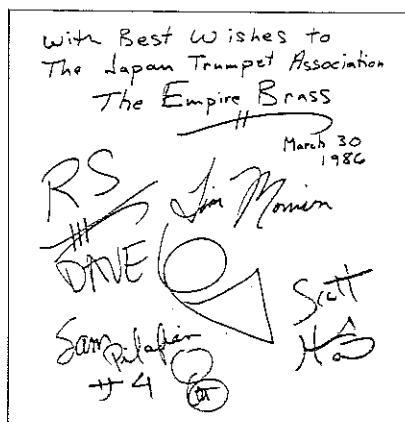 With Best Wishes to
The Japan Trumpet Association
The Empire Brass
March 30
1986
RS
Tim Morrison
DAVE
Scott
Sam Pilafian
#4